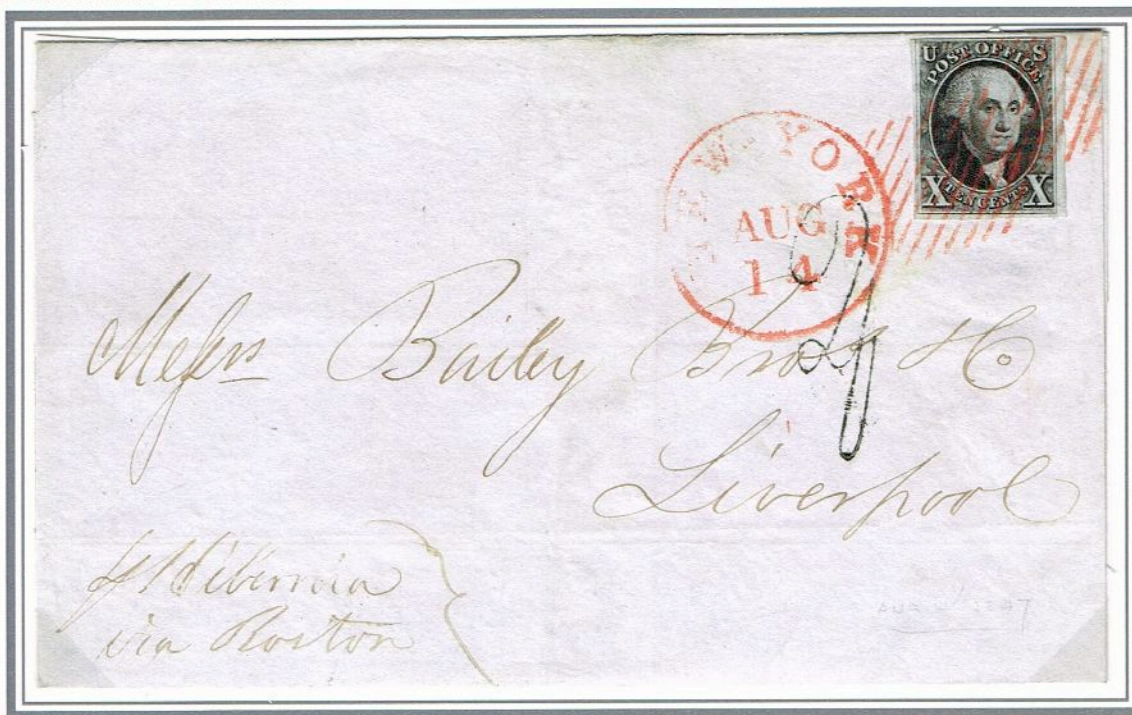 U S
POST OFFICE
X TEN CENTS X
NEW-YORK
AUG
14
Messrs Bailey Bros & Co
Liverpool
Hibernia
via Boston